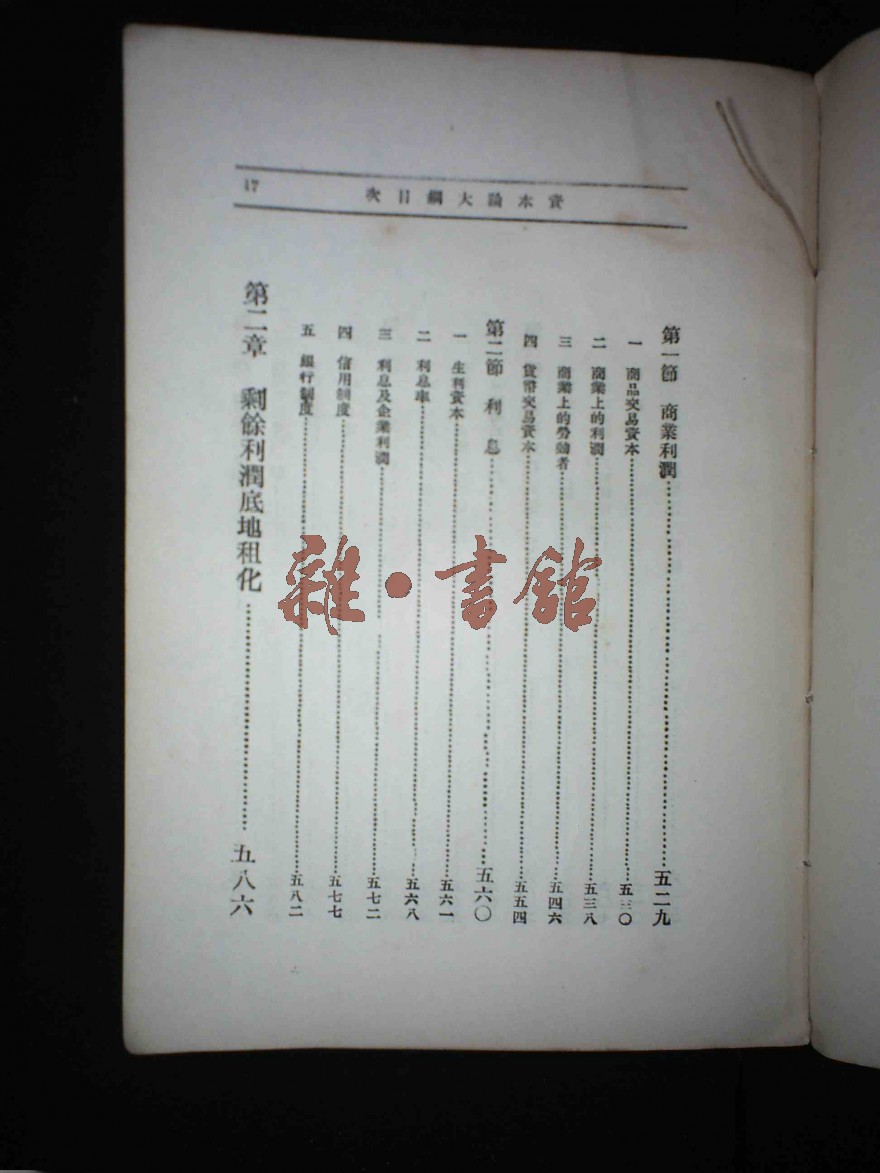 資本論大綱目次
17
第一節 商業利潤……五二九
一 商品交易資本……五三〇
二 商業上的利潤……五三八
三 商業上的勞動者……五四六
四 貨幣交易資本……五五四
第二節 利息……五六〇
一 生利資本……五六一
二 利息率……五六八
三 利息及企業利潤……五七二
四 信用制度……五七七
五 銀行制度……五八二
第二章 剩餘利潤底地租化……五八六
雜·書館